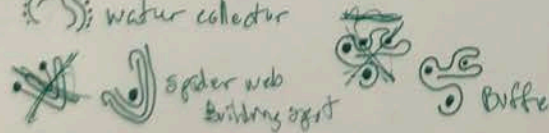 water collector
spider web
Building spot
Buffe